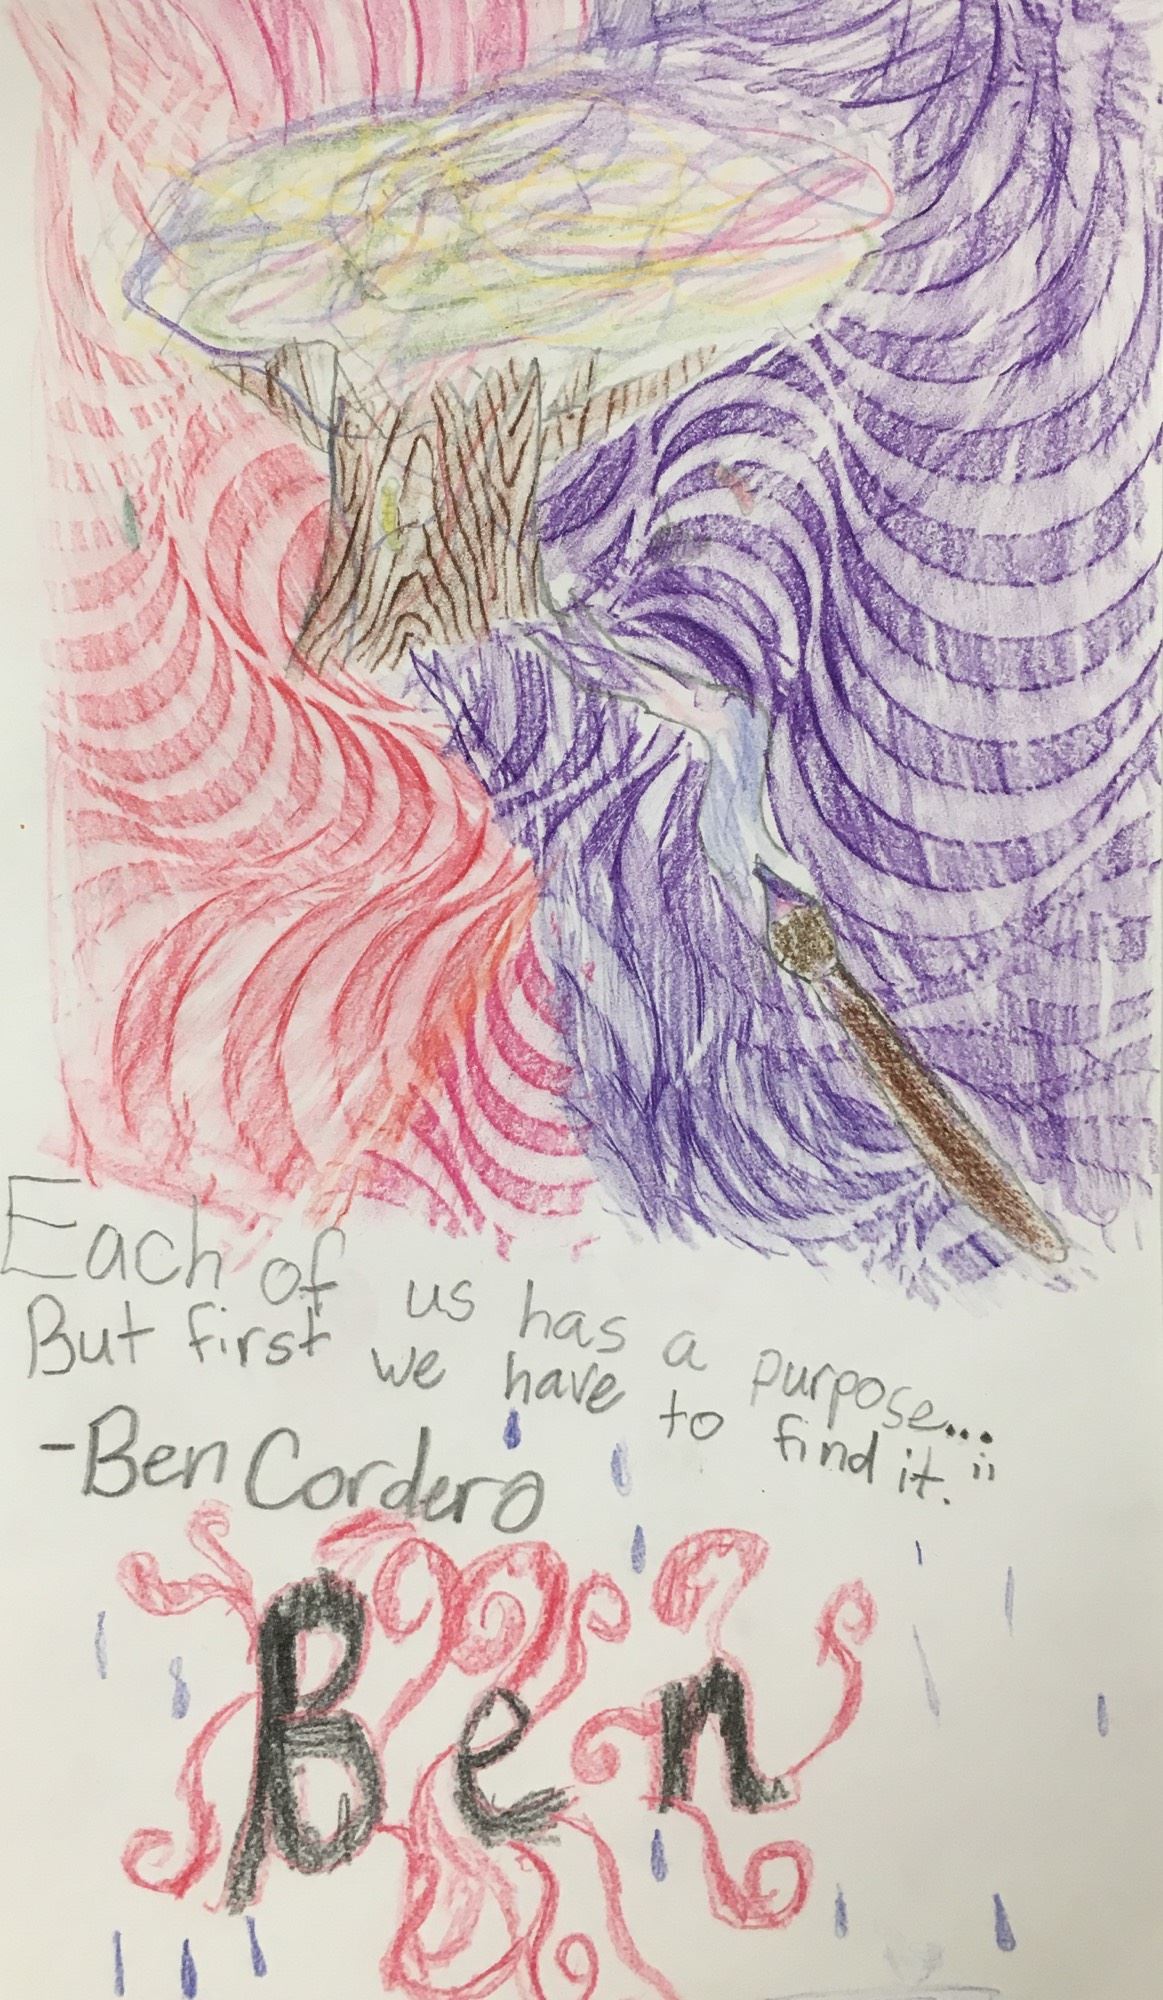 Each of us has a purpose...
But first we have to find it. ¨
-Ben Cordero
Ben